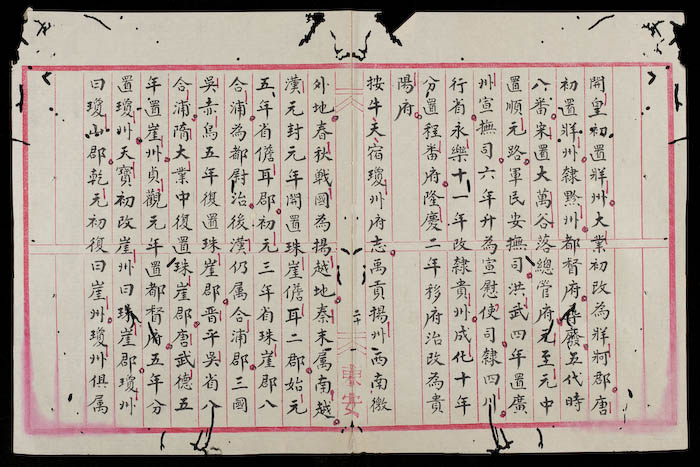 開皇初置牂州大業初改為牂牁郡唐
初置牂州隸黔州都督府尋廢五代時
八番宋置大萬谷落總管府元至元中
置順元路軍民安撫司洪武四年置廣
州宣撫司六年升為宣慰使司隸四川
行省永樂十一年改隸貴州成化十年
分置程番府隆慶二年移府治改為貴
陽府
按牛天宿瓊州府志禹貢揚州西南徼
二十一
東安
外地春秋戰國為揚越地秦末屬南越
漢元封元年開置珠崖儋耳二郡始元
五年省儋耳郡初元三年省珠崖郡八
合浦為都尉治後漢仍屬合浦郡三國
吳赤烏五年復置珠崖郡晉平吳省八
合浦隋大業中復置珠崖郡唐武德五
年置崖州貞觀元年置都督府五年分
置瓊州天寶初改崖州曰珠崖郡瓊州
曰瓊山郡乾元初復曰崖州瓊州俱屬